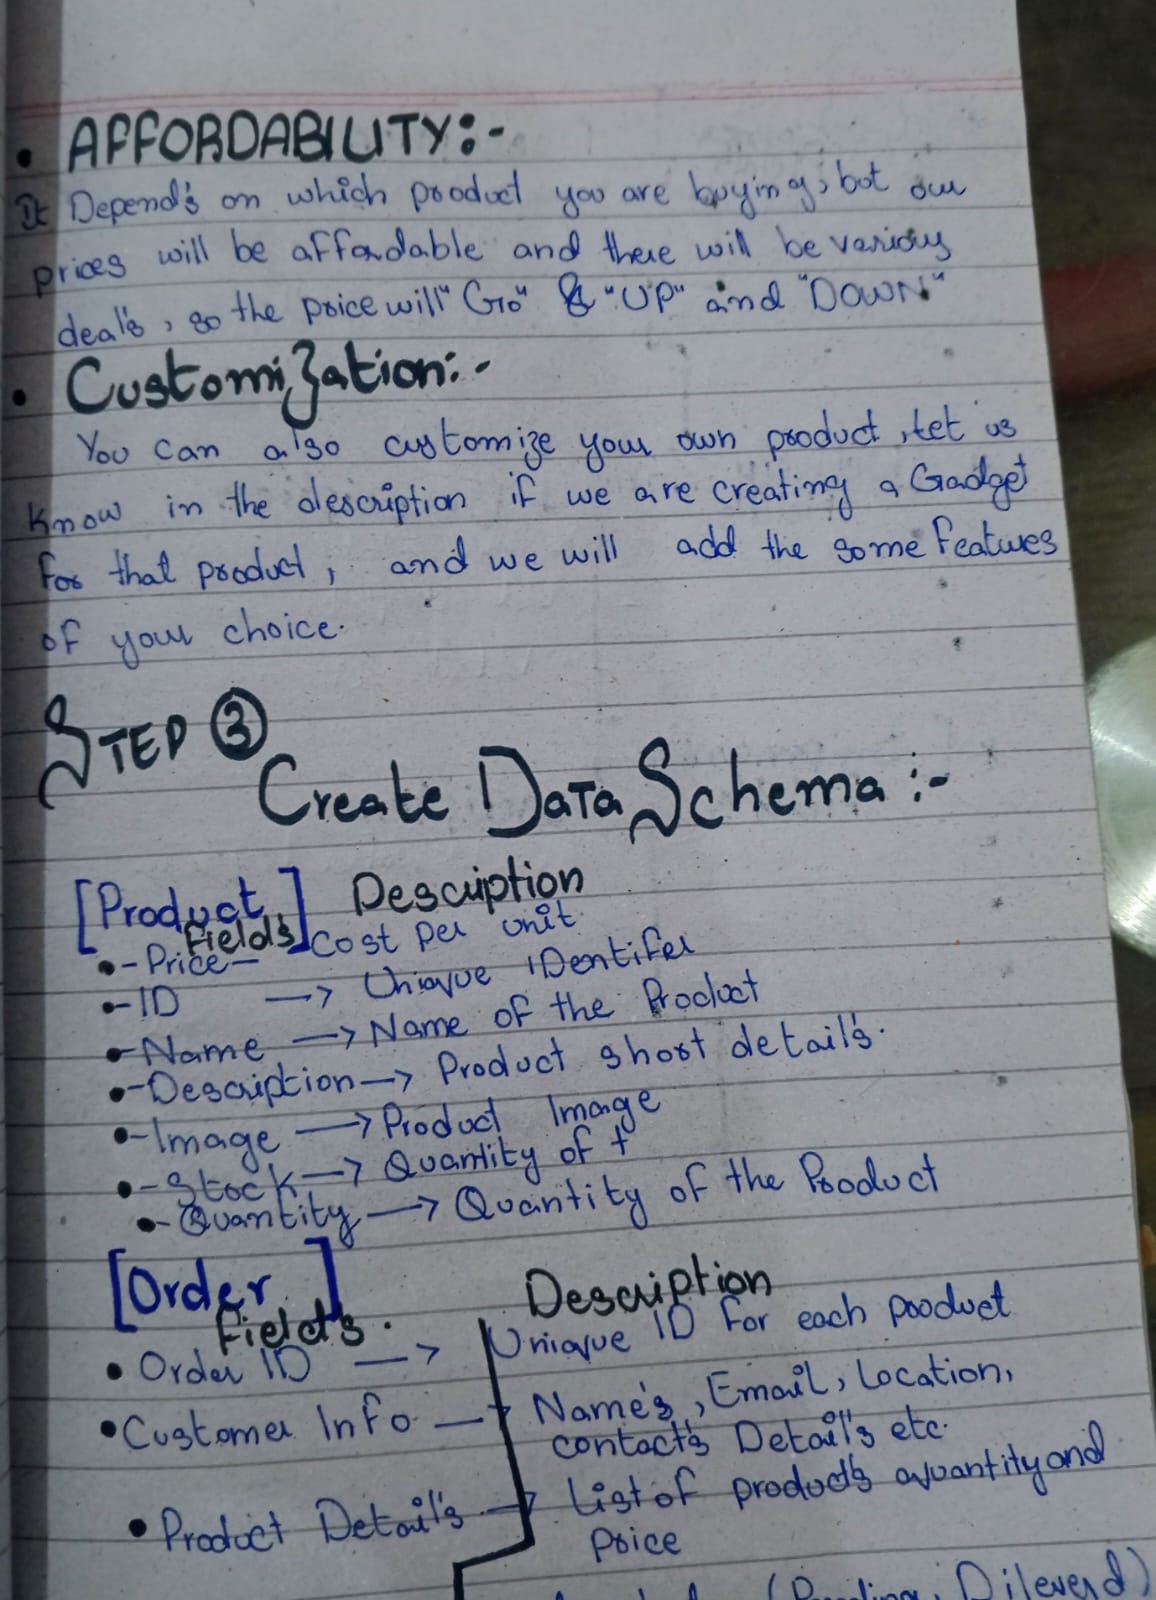 • AFFORDABILITY:-
It Depend's on which product you are buying, but our
prices will be affordable and there will be various
deal's, so the price will "Go" & "UP" and "DOWN"
• Customization:-
You can also customize your own product, let us
know in the description if we are creating a Gadget
for that product, and we will add the some features
of your choice.
STEP ③
Create Data Schema :-
[Product Field's] Description
• - Price - Cost per unit
• - ID → Uniqve IDentifer
• - Name → Name of the Product
• - Description → Product short detail's.
• - Image → Product Image
• - Stock → Quantity of t
• - Quantity → Quantity of the Product
[Order Field's.] Description
• Order ID → Uniqve ID for each product
• Customer Info → Name's, Email, Location,
contact's Detail's etc.
• Product Detail's → List of product's quantity and
Price
(Pending, Dileverd)